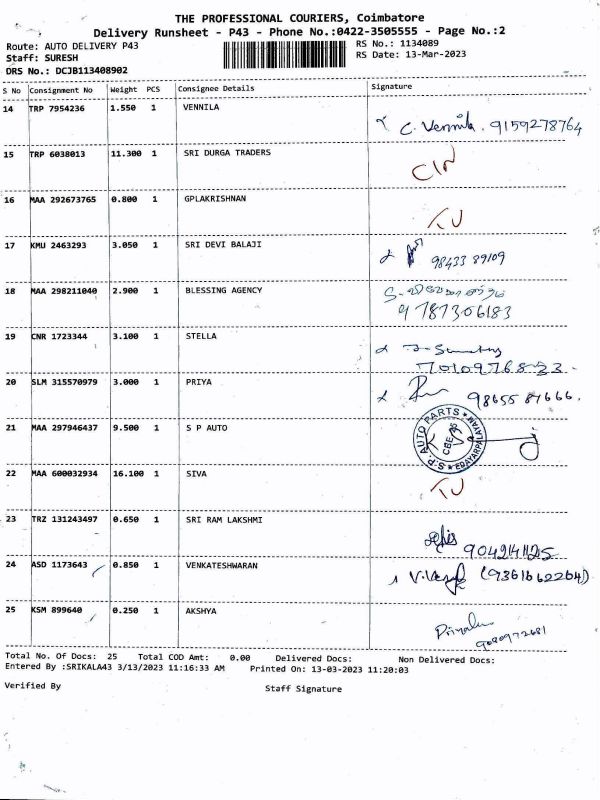 THE PROFESSIONAL COURIERS, Coimbatore
Delivery Runsheet - P43 - Phone No.:0422-3505555 - Page No.:2
Route: AUTO DELIVERY P43 RS No.: 1134089
Staff: SURESH RS Date: 13-Mar-2023
DRS No.: DCJB113408902
S No Consignment No Weight PCS Consignee Details Signature
14 TRP 7954236 1.550 1 VENNILA
C. Vennila. 9159278764
15 TRP 6038013 11.300 1 SRI DURGA TRADERS
16 MAA 292673765 0.800 1 GPLAKRISHNAN
17 KMU 2463293 3.050 1 SRI DEVI BALAJI
98433 89109
18 MAA 298211040 2.900 1 BLESSING AGENCY
9787306183
19 CNR 1723344 3.100 1 STELLA
7010976823
20 SLM 315570979 3.000 1 PRIYA
98655 87666.
21 MAA 297946437 9.500 1 S P AUTO
S.P.S. AUTO PARTS
EDAYARPALAYAM
22 MAA 600032934 16.100 1 SIVA
23 TRZ 131243497 0.650 1 SRI RAM LAKSHMI
9042141125
24 ASD 1173643 0.850 1 VENKATESHWARAN
(9361662264)
25 KSM 899640 0.250 1 AKSHYA
9080972681
Total No. Of Docs: 25 Total COD Amt: 0.00 Delivered Docs: Non Delivered Docs:
Entered By :SRIKALA43 3/13/2023 11:16:33 AM Printed On: 13-03-2023 11:20:03
Verified By Staff Signature